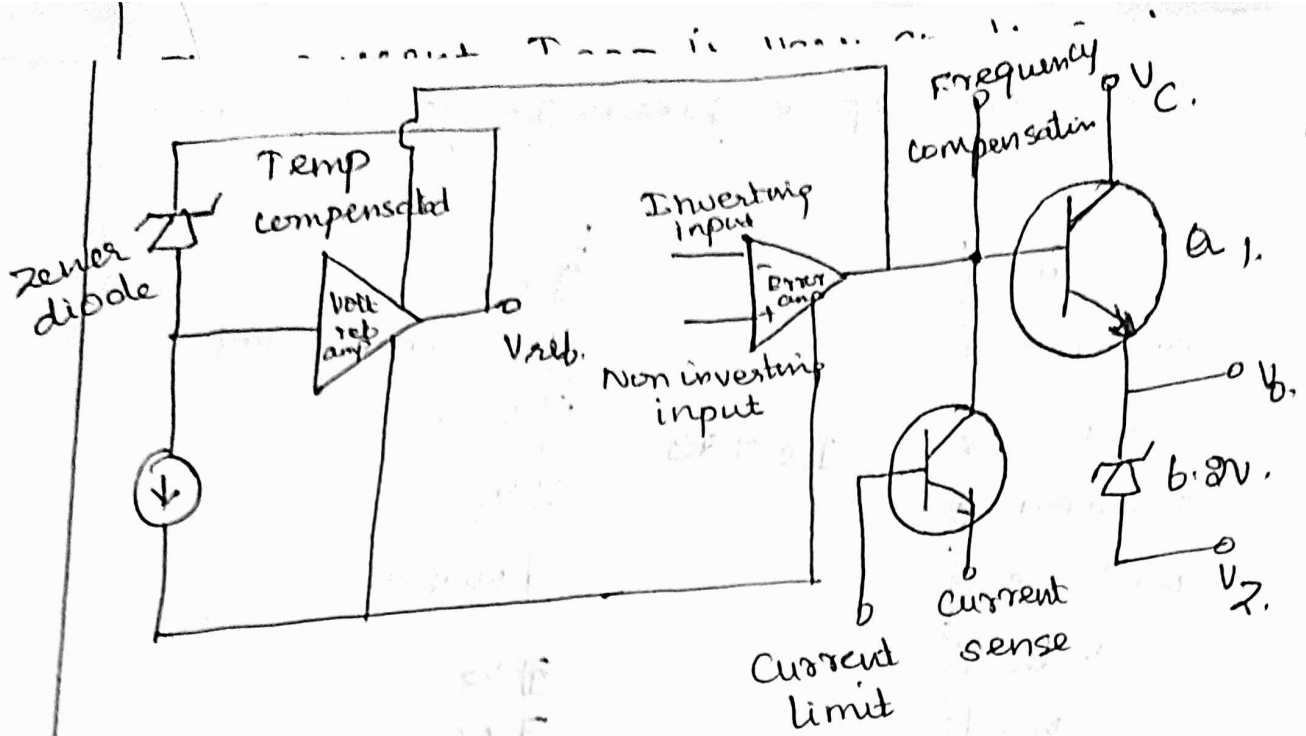 Frequency
compensatin
Vc.
Temp
compensated
Zener
diode
Volt
ref
amp
Vref.
Inverting
input
-
Error
amp
+
Non inverting
input
Q1.
Vo.
6.2V.
Vz.
Current
sense
Current
limit